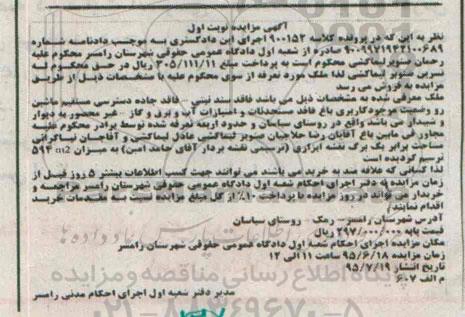 آگهی مزایده نوبت اول
نظر به این که در پرونده کلاسه ۹۰۰۱۵۲ اجرای این دادگستری به موجب دادنامه شماره
۹۰۰۹۹۷۱۹۴۳۱۰۰۶۸۹ صادره از شعبه اول دادگاه عمومی حقوقی شهرستان رامسر محکوم علیه
رحمان صنوبر لیماکشی محکوم است به پرداخت مبلغ ۳۰۵/۱۱۱/۱۱ ریال در حق محکوم لها
نسرین صنوبر لیماکشی لذا ملک مورد تعرفه از سوی محکوم علیه با مشخصات ذیل از طریق
مزایده به فروش می رسد
ملک معرفی شده به مشخصات ذیل می باشد فاقد سند ثبتی - فاقد جاده دسترسی مستقیم ماشین
رو وضعیت موجود کاربری باغ فاقد مستحدثات و امتیازات آب و برق و گاز - غیر محصور به دیوار
و سیمدار می باشد واقع در روستای سیاسان و حدود اربعه تعرفه شده توسط برادر محکوم علیه
مجاور فی مابین باغ آقایان رضا حلاجیان صنوبر لیماکشی عادل لیماکشی و آقاجان لیماکرانی
مساحت برابر یک برگ نقشه ابرازی (ترسیمی نقشه بردار آقای حامد امین) به میزان ۵۹۴ m2
ترسیم گردیده است
لذا کسانی که علاقه مند به خرید می باشند می توانند جهت کسب اطلاعات بیشتر ۵ روز قبل از
زمان مزایده به دفتر اجرای احکام شعبه اول دادگاه عمومی حقوقی شهرستان رامسر مراجعه و
خریدار می تواند در روز مزایده با پرداخت ۱۰٪ از کل مبلغ مزایده نسبت به مقدمات خرید
اقدام نمایند/
آدرس شهرستان رامسر - رمک - روستای سیاسان
قیمت پایه ۲۹۷/۰۰۰/۰۰۰ ریال
مکان مزایده اجرای احکام شعبه اول دادگاه عمومی حقوقی شهرستان رامسر
زمان مزایده ۹۵/۶/۱۸ ساعت ۱۱ الی ۱۲
تاریخ انتشار ۹۵/۷/۱۹
م الف ۶۰۷
مدیر دفتر شعبه اول اجرای احکام مدنی رامسر
پایگاه اطلاع رسانی مناقصه و مزایده
۰۲۱-۸۸۳۴۹۶۷۰-۵